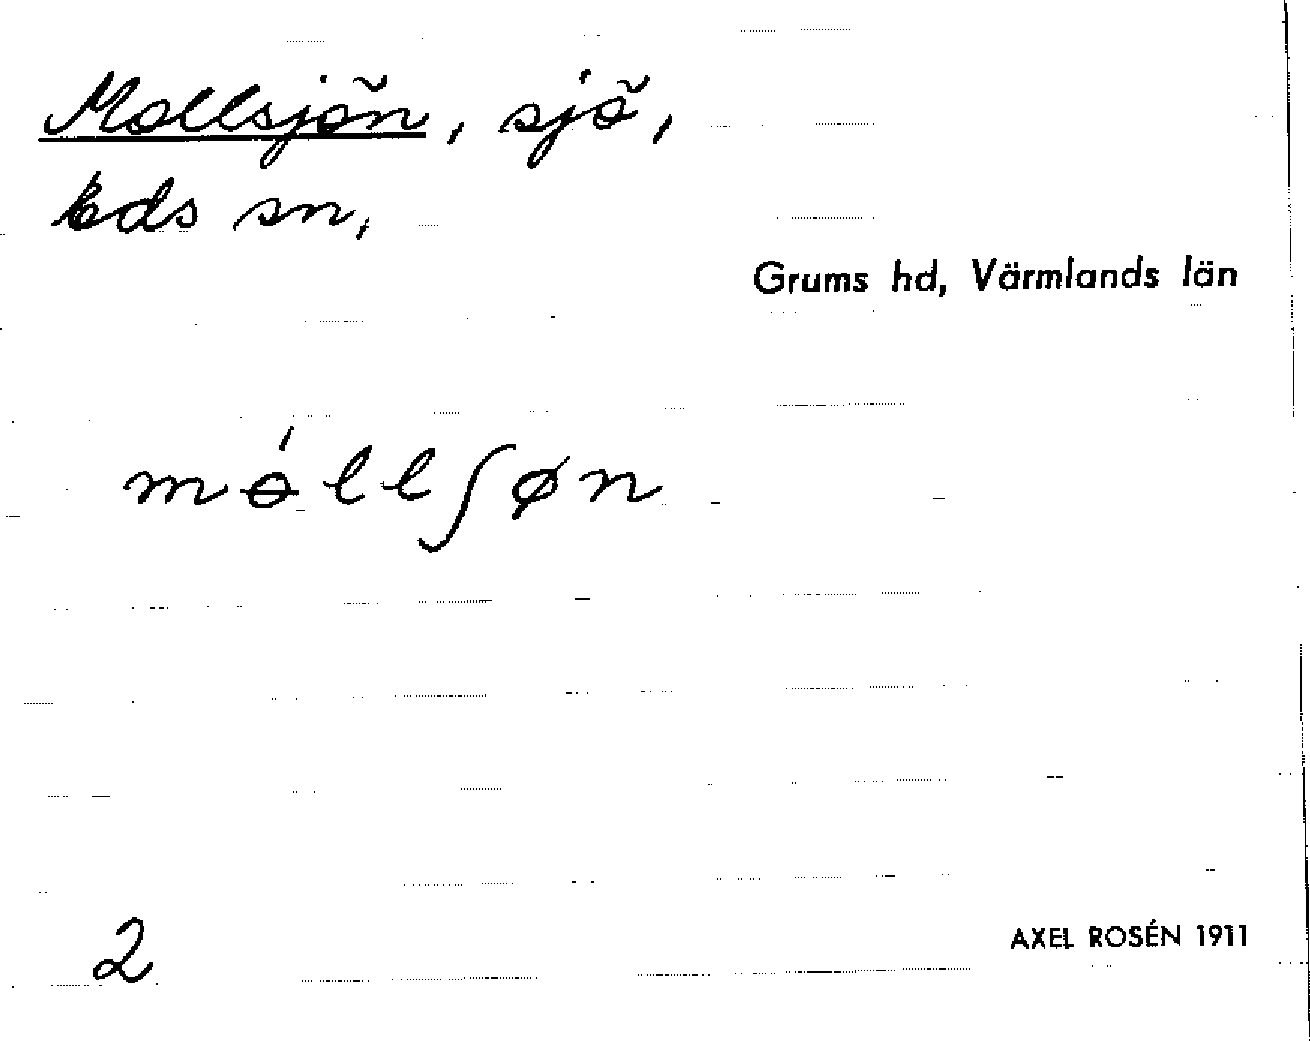 Mollsjön, sjö,
Eds sn,
Grums hd, Värmlands län
mɵ́llʃøn
2
AXEL ROSÉN 1911